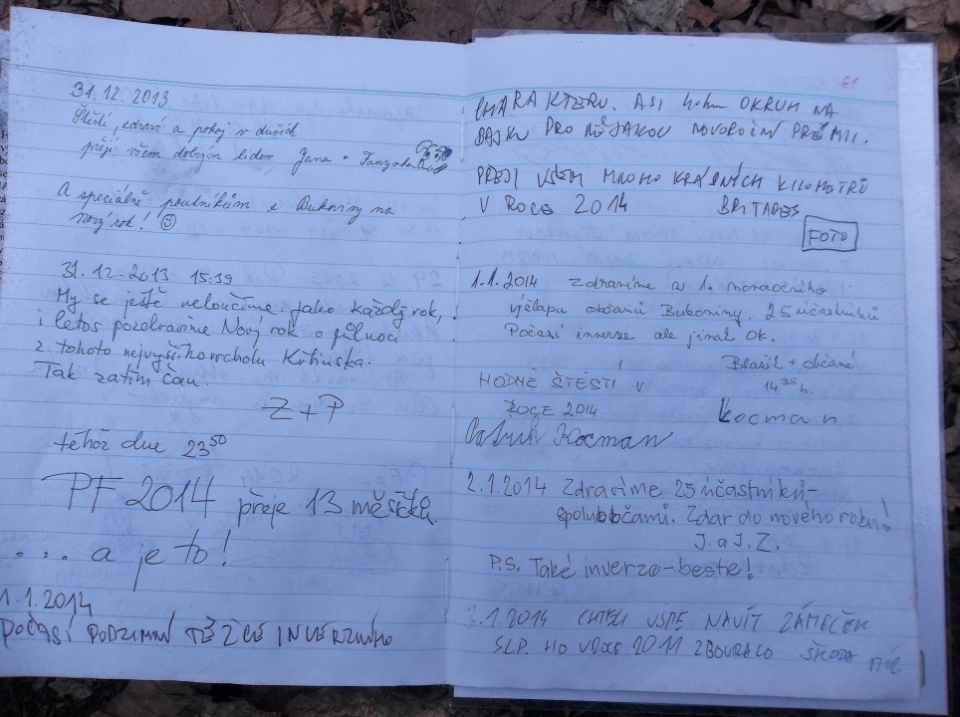 31.12.2013
Štěstí, zdraví a pokoj v duších
přeje všem dobrým lidem Jana +
A speciálně poutníkům z Bukoviny na
nový rok! ☺
31.12.2013 15:39
My se ještě neloučíme jako každý rok,
i letos pozdravíme Nový rok o půlnoci
z tohoto nejvyššího vrcholu Křtinska.
Tak zatím čau.
Z+P
téhož dne 23 50
PF 2014 přeje 13 měsíčků
.... a je to!
1.1.2014
POČASÍ PODZIMNÍ TĚŽCE INVERZNÍHO
61
CHARAKTERU. ASI 40km OKRUH NA
BAJKU PRO NĚJAKOU NOVOROČNÍ PRÉMII.
PŘEJI VŠEM MNOHO KRÁSNÝCH KILOMETRŮ
V ROCE 2014
FOTO
1.1.2014 Zdravíme z 1. novoročního
výšlapu občanů Bukoviny. 25 účastníků
Počasí inverze ale jinak OK.
+ občané
14 35 h.
HODNĚ ŠTĚSTÍ V
ROCE 2014
Kocman
Kocman
2.1.2014 Zdravíme 25 účastníků-
spoluobčanů. Zdar do nového roku!
J. a J. Z.
P.S. Také inverzo-bestie!
3.1.2014 CHTĚLI JSME NAVŠTÍVIT ZÁMEČEK
SLP. HO V ROCE 2011 ZBOURALO ŠKODA